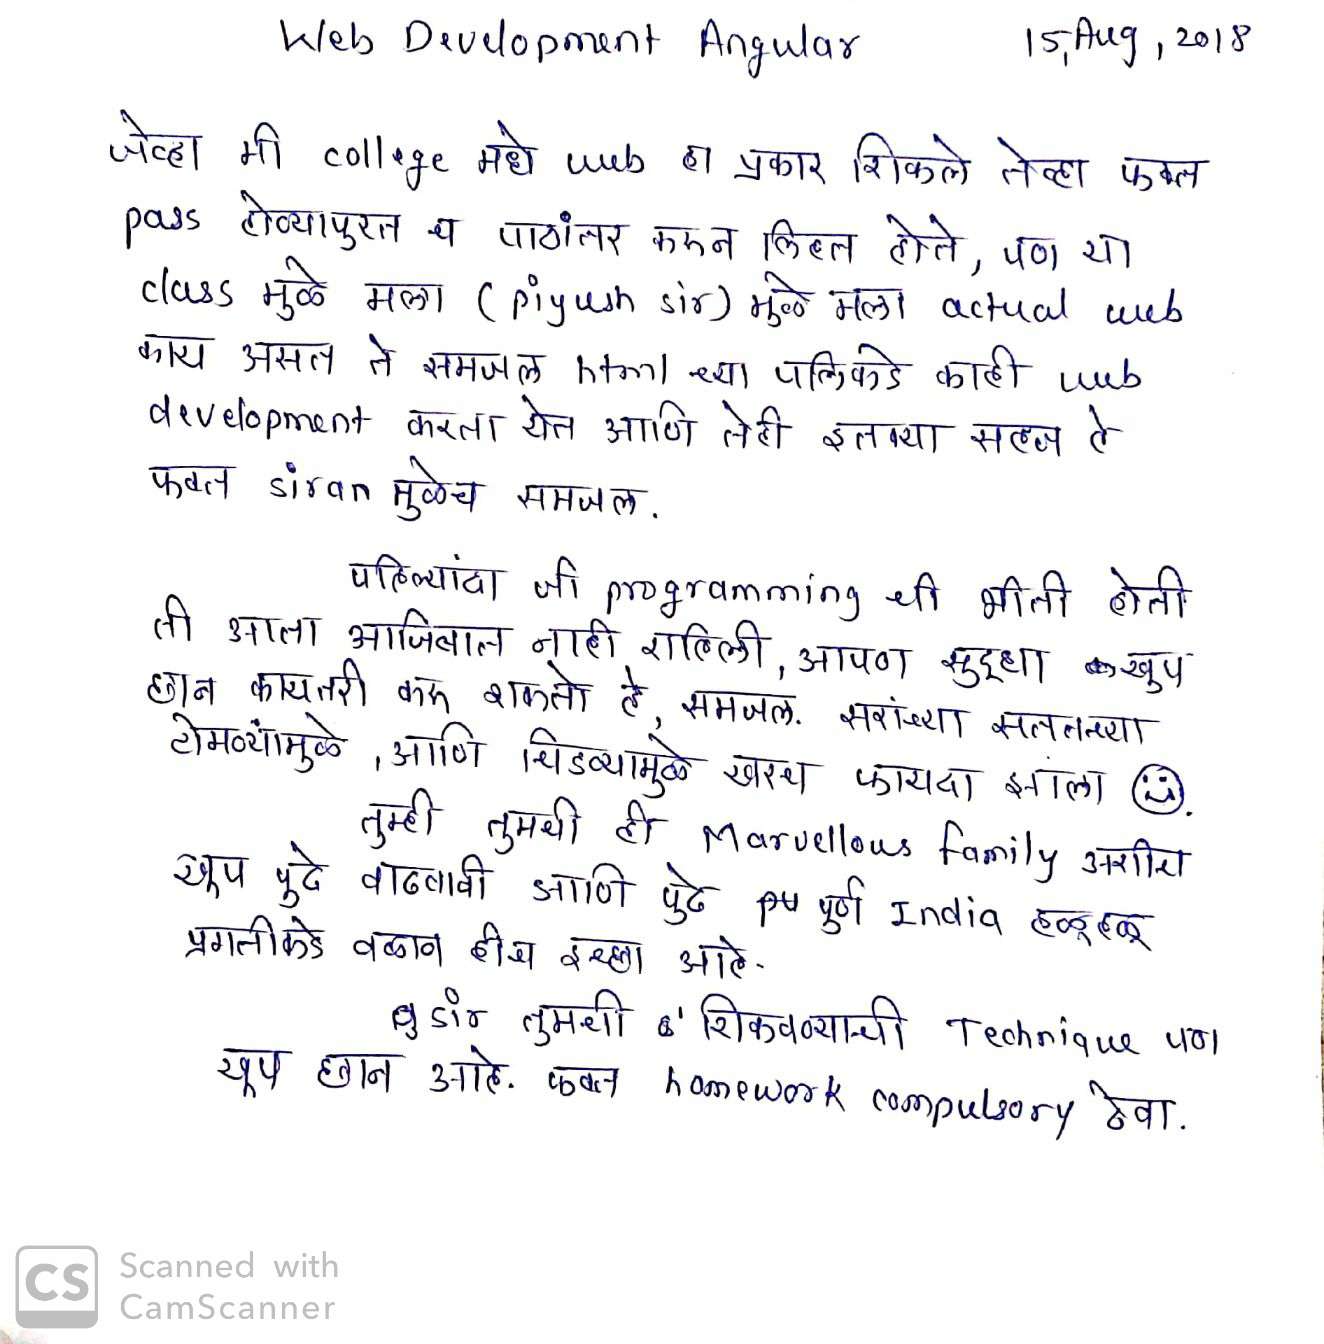 Web Development Angular 15, Aug, 2018
जेव्हा मी college मधे web हा प्रकार शिकले तेव्हा फक्त
pass होण्यापुरत च पाठांतर करून लिहल होते, पण या
class मुळे मला (piyush sir) मुळे मला actual web
काय असत ते समजल html च्या पलिकडे काही web
development करता येत आणि तेही इतक्या सहज हे
फक्त siran मुळेच समजल.
पहिल्यांदा जी programming ची भीती होती
ती आता आजिबात नाही राहिली, आपण सुद्धा खूप
छान कायतरी करू शकतो हे, समजल. सरांच्या सततच्या
टोमण्यांमुळे, आणि चिडव्यामुळे खरच फायदा झाला
तुम्ही तुमची ही Marvellous family अशीच
खूप पुढे वाढवावी आणि पुढे पूर्ण India हळूहळू
प्रगतीकडे वळाव हीच इच्छा आहे.
sir तुमची शिकवण्याची Technique पण
खूप छान आहे. फक्त homework compulsory ठेवा.
CS Scanned with
CamScanner